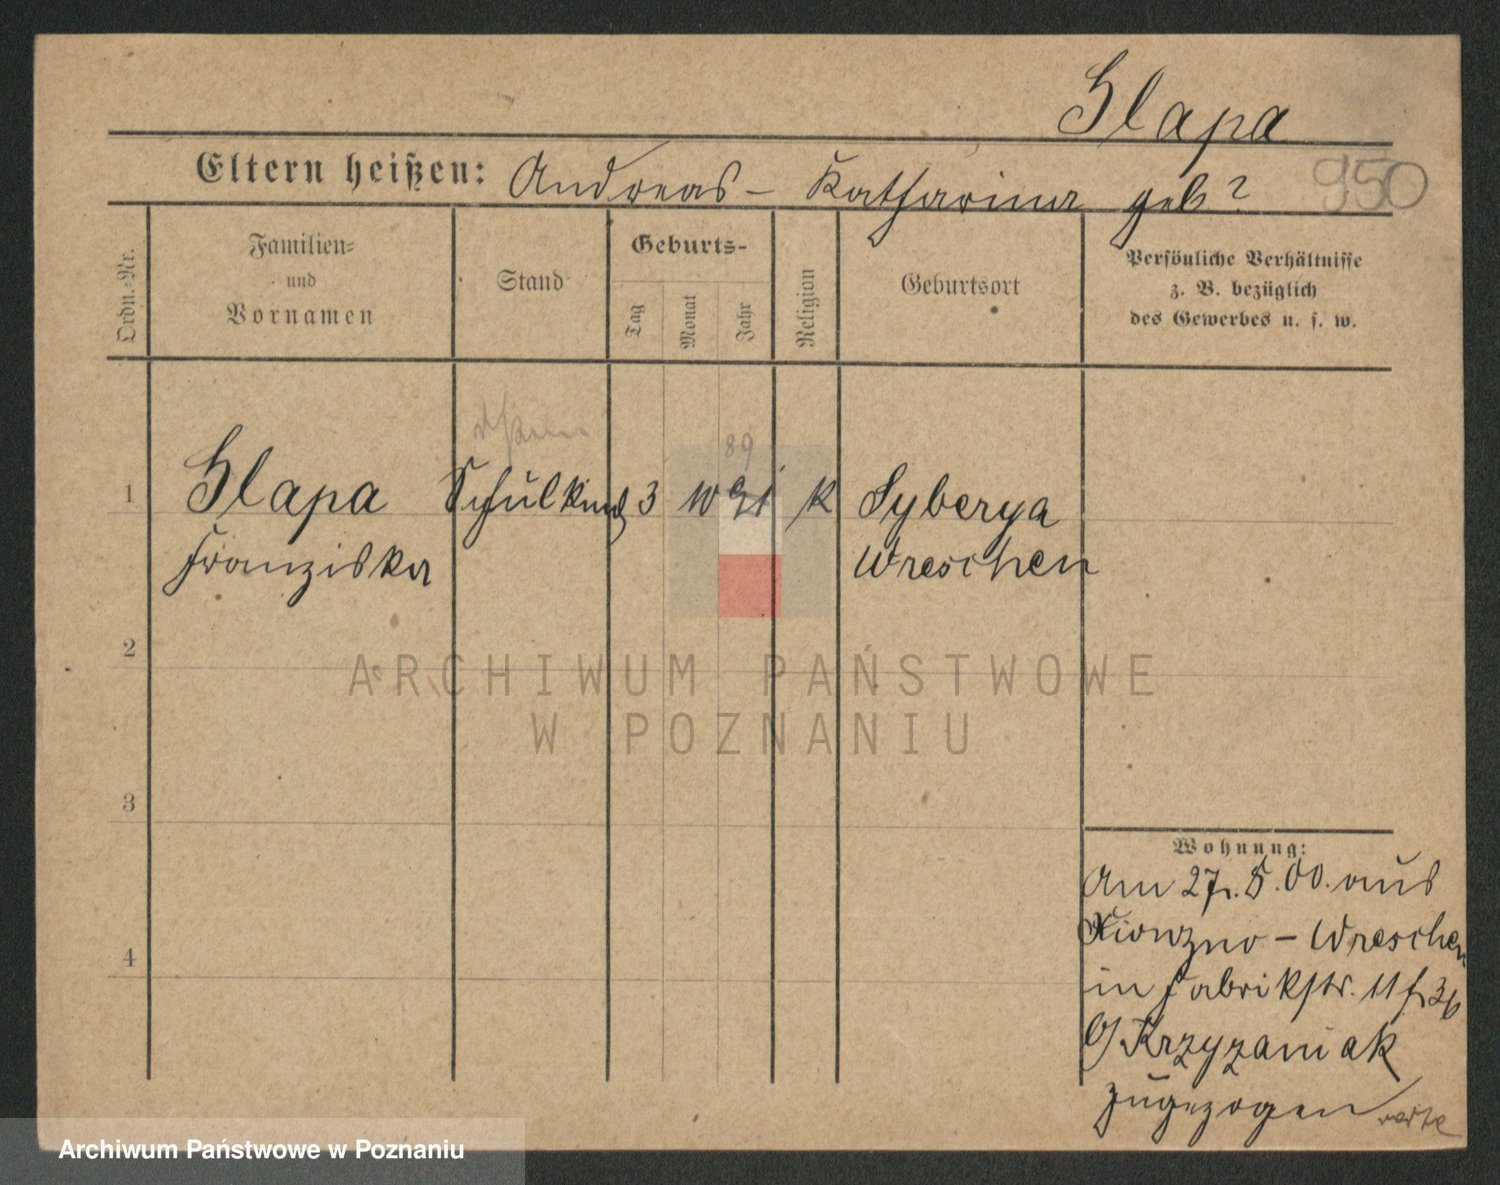 Slapa
Eltern heißen: Andreas – Katharina geb?
950
Ordn.-Nr.
Familien-
und
Vornamen
Stand
Geburts-
Tag
Monat
Jahr
Religion
Geburtsort
Persönliche Verhältnisse
z. B. bezüglich
des Gewerbes u. s. w.
89
1 Slapa Schulkind 3 10 91 K Syberya
Franziska Wreschen
2
ARCHIWUM PAŃSTWOWE
W POZNANIU
3
Wohnung:
Am 27. 5. 00. aus
– Wreschen
4
in Fabrikstr. 11
b/ Krzyzaniak
zugezogen
Archiwum Państwowe w Poznaniu